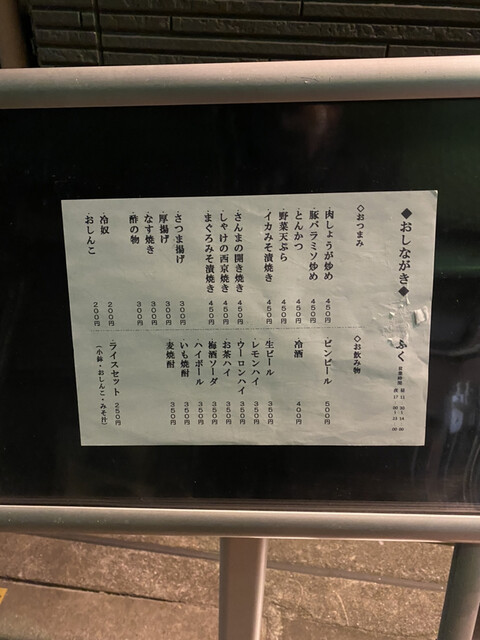 ◆おしながき◆
ふく
営業時間
昼 11:30~14:00
夜 17:00~23:00
◇おつまみ
・肉しょうが炒め 450円
・豚バラミソ炒め 450円
・とんかつ 450円
・野菜天ぷら 450円
・イカみそ漬焼き 450円
・さんまの開き焼き 450円
・しゃけの西京焼き 450円
・まぐろみそ漬焼き 450円
・さつま揚げ 300円
・厚揚げ 300円
・なす焼き 300円
・酢の物 300円
・冷奴 200円
・おしんこ 200円
◇お飲み物
・ビンビール 500円
・冷酒 400円
・生ビール 350円
・レモンハイ 350円
・ウーロンハイ 350円
・お茶ハイ 350円
・梅酒ソーダ 350円
・ハイボール 350円
・いも焼酎 350円
・麦焼酎 350円
・ライスセット 250円
(小鉢・おしんこ・みそ汁)